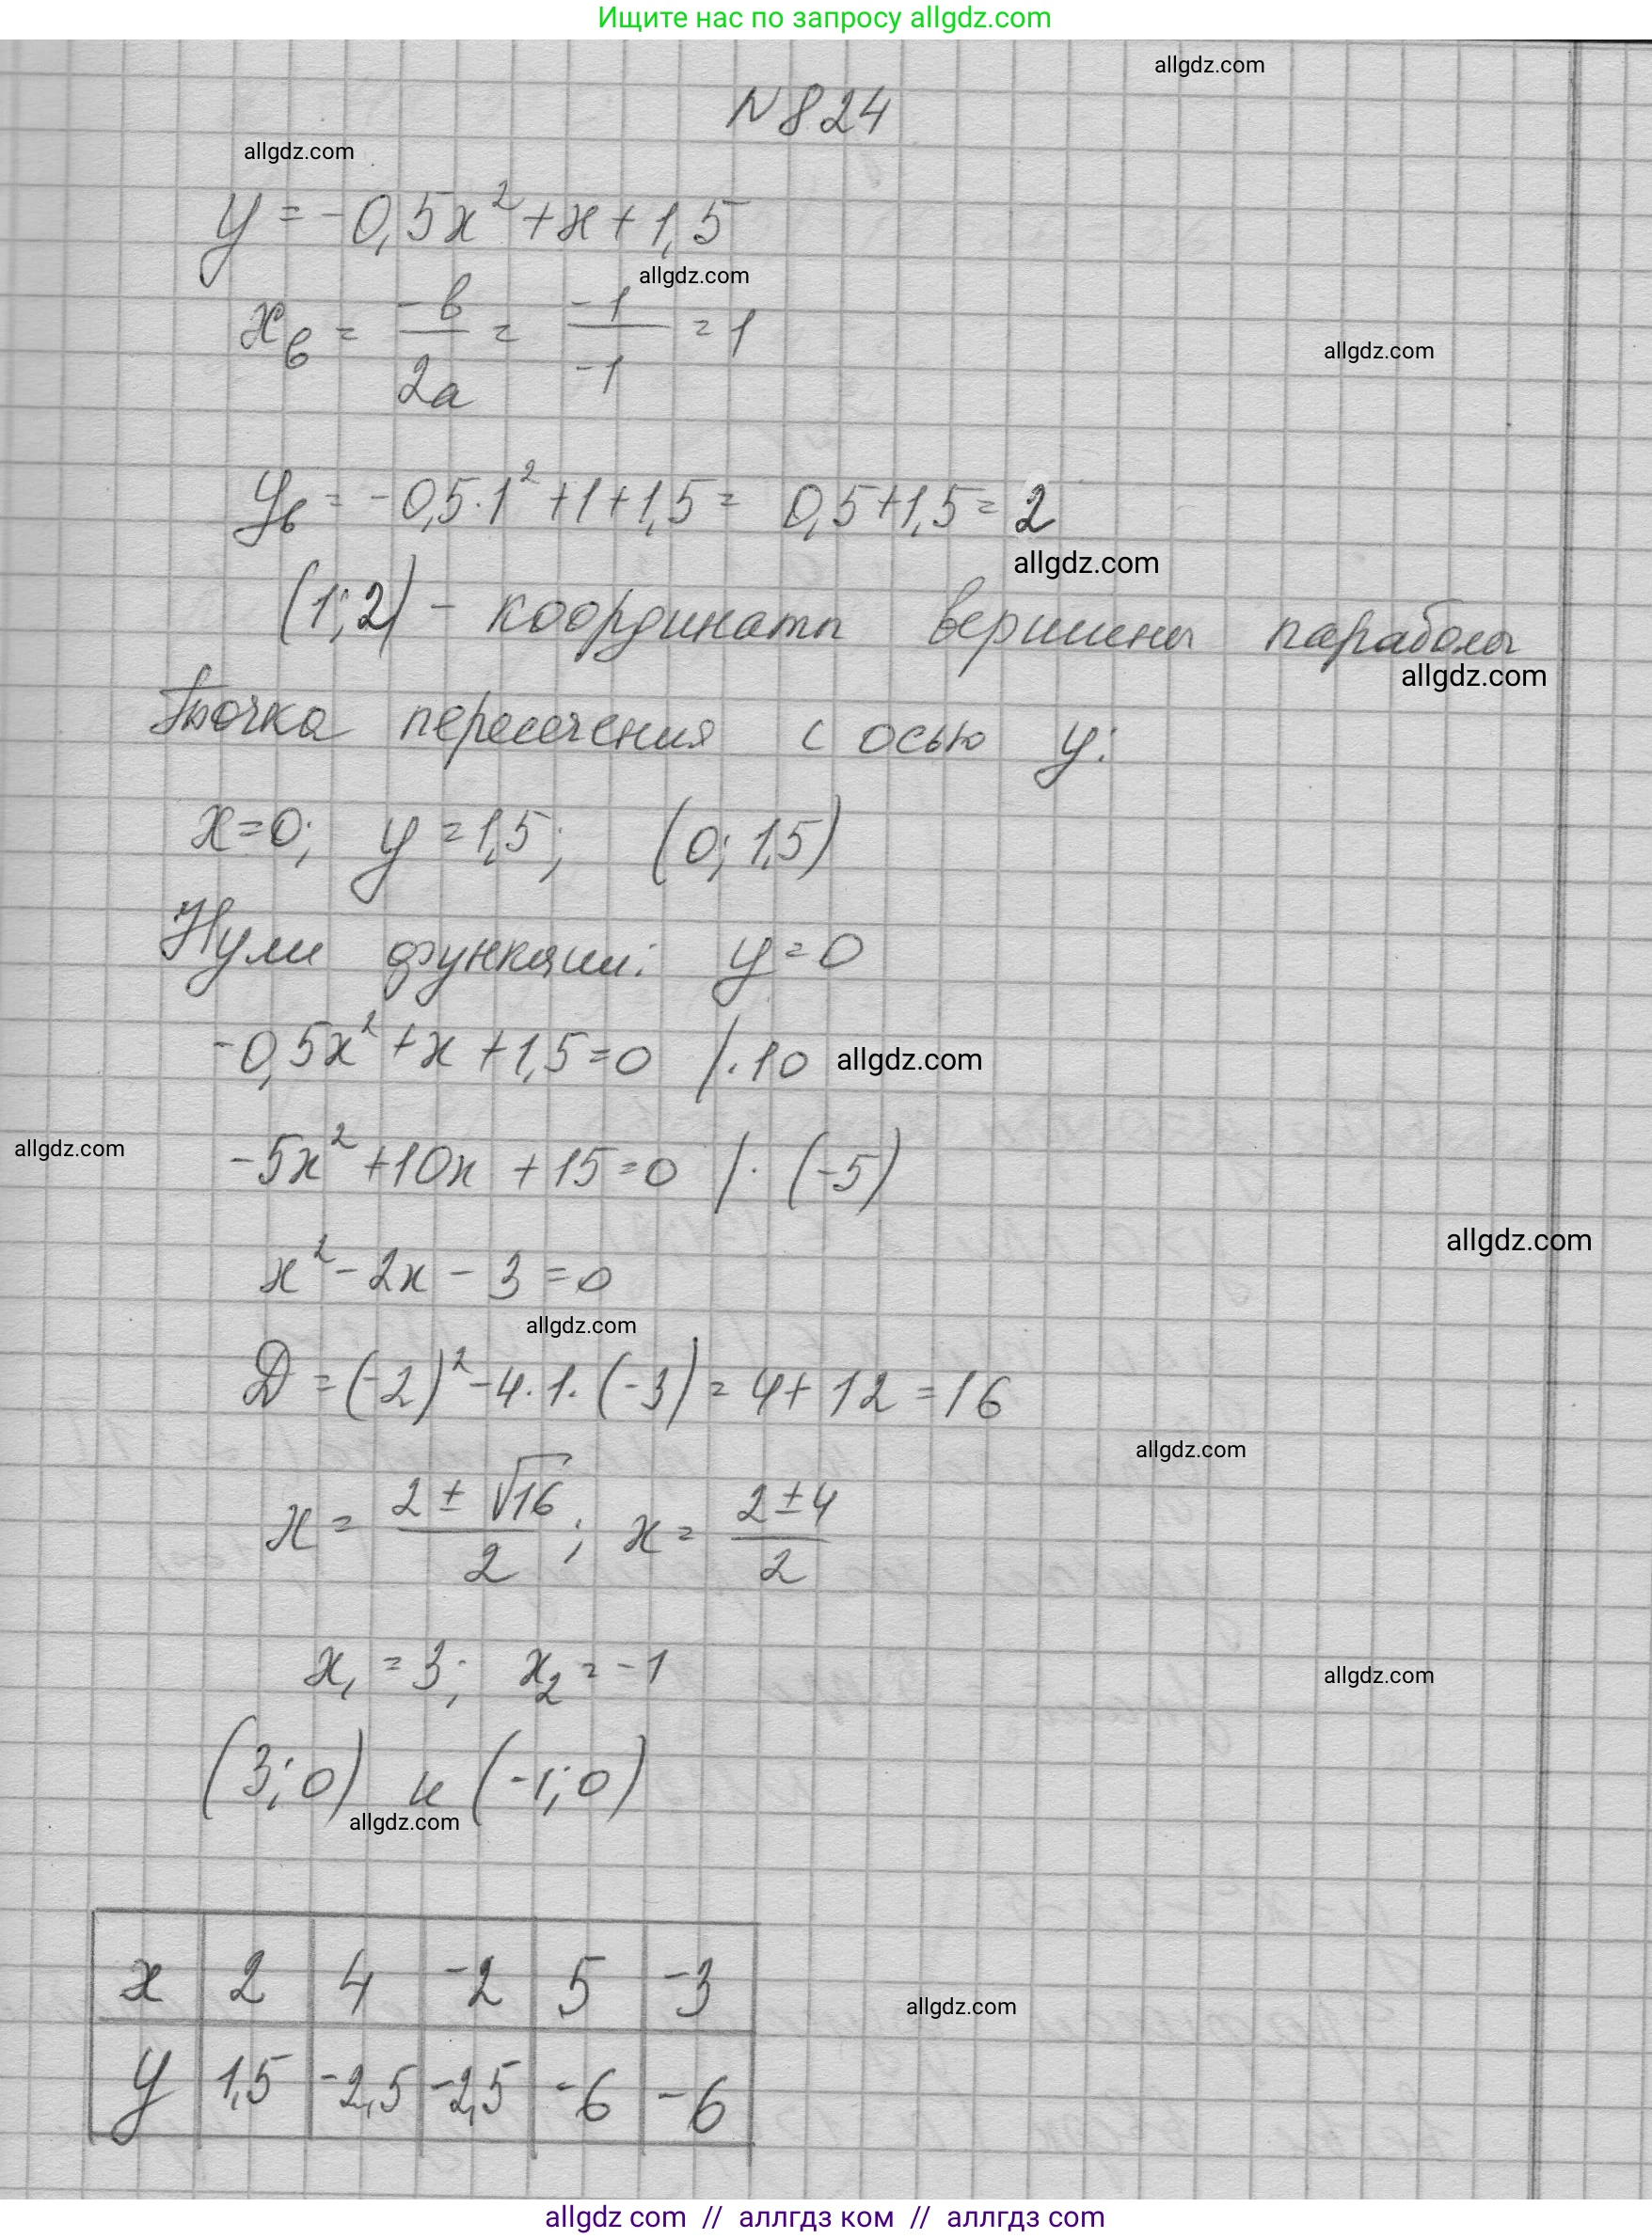 Ищите нас по запросу allgdz.com
allgdz.com
N 824
allgdz.com
y = -0,5x² + x + 1,5
allgdz.com
x_в = -b/2a = -1/-1 = 1
allgdz.com
y_в = -0,5·1² + 1 + 1,5 = 0,5 + 1,5 = 2
allgdz.com
(1; 2) - координаты вершины параболы
allgdz.com
Точка пересечения с осью y:
x=0; y = 1,5; (0; 1,5)
Нули функции: y = 0
-0,5x² + x + 1,5 = 0 /·10
allgdz.com
allgdz.com
-5x² + 10x + 15 = 0 /: (-5)
allgdz.com
x² - 2x - 3 = 0
allgdz.com
D = (-2)² - 4·1·(-3) = 4 + 12 = 16
allgdz.com
x = (2 ± √16)/2; x = (2 ± 4)/2
x₁ = 3; x₂ = -1
allgdz.com
(3; 0) и (-1; 0)
allgdz.com
x 2 4 -2 5 -3
allgdz.com
y 1,5 -2,5 -2,5 -6 -6
allgdz.com // аллгдз ком // аллгдз com